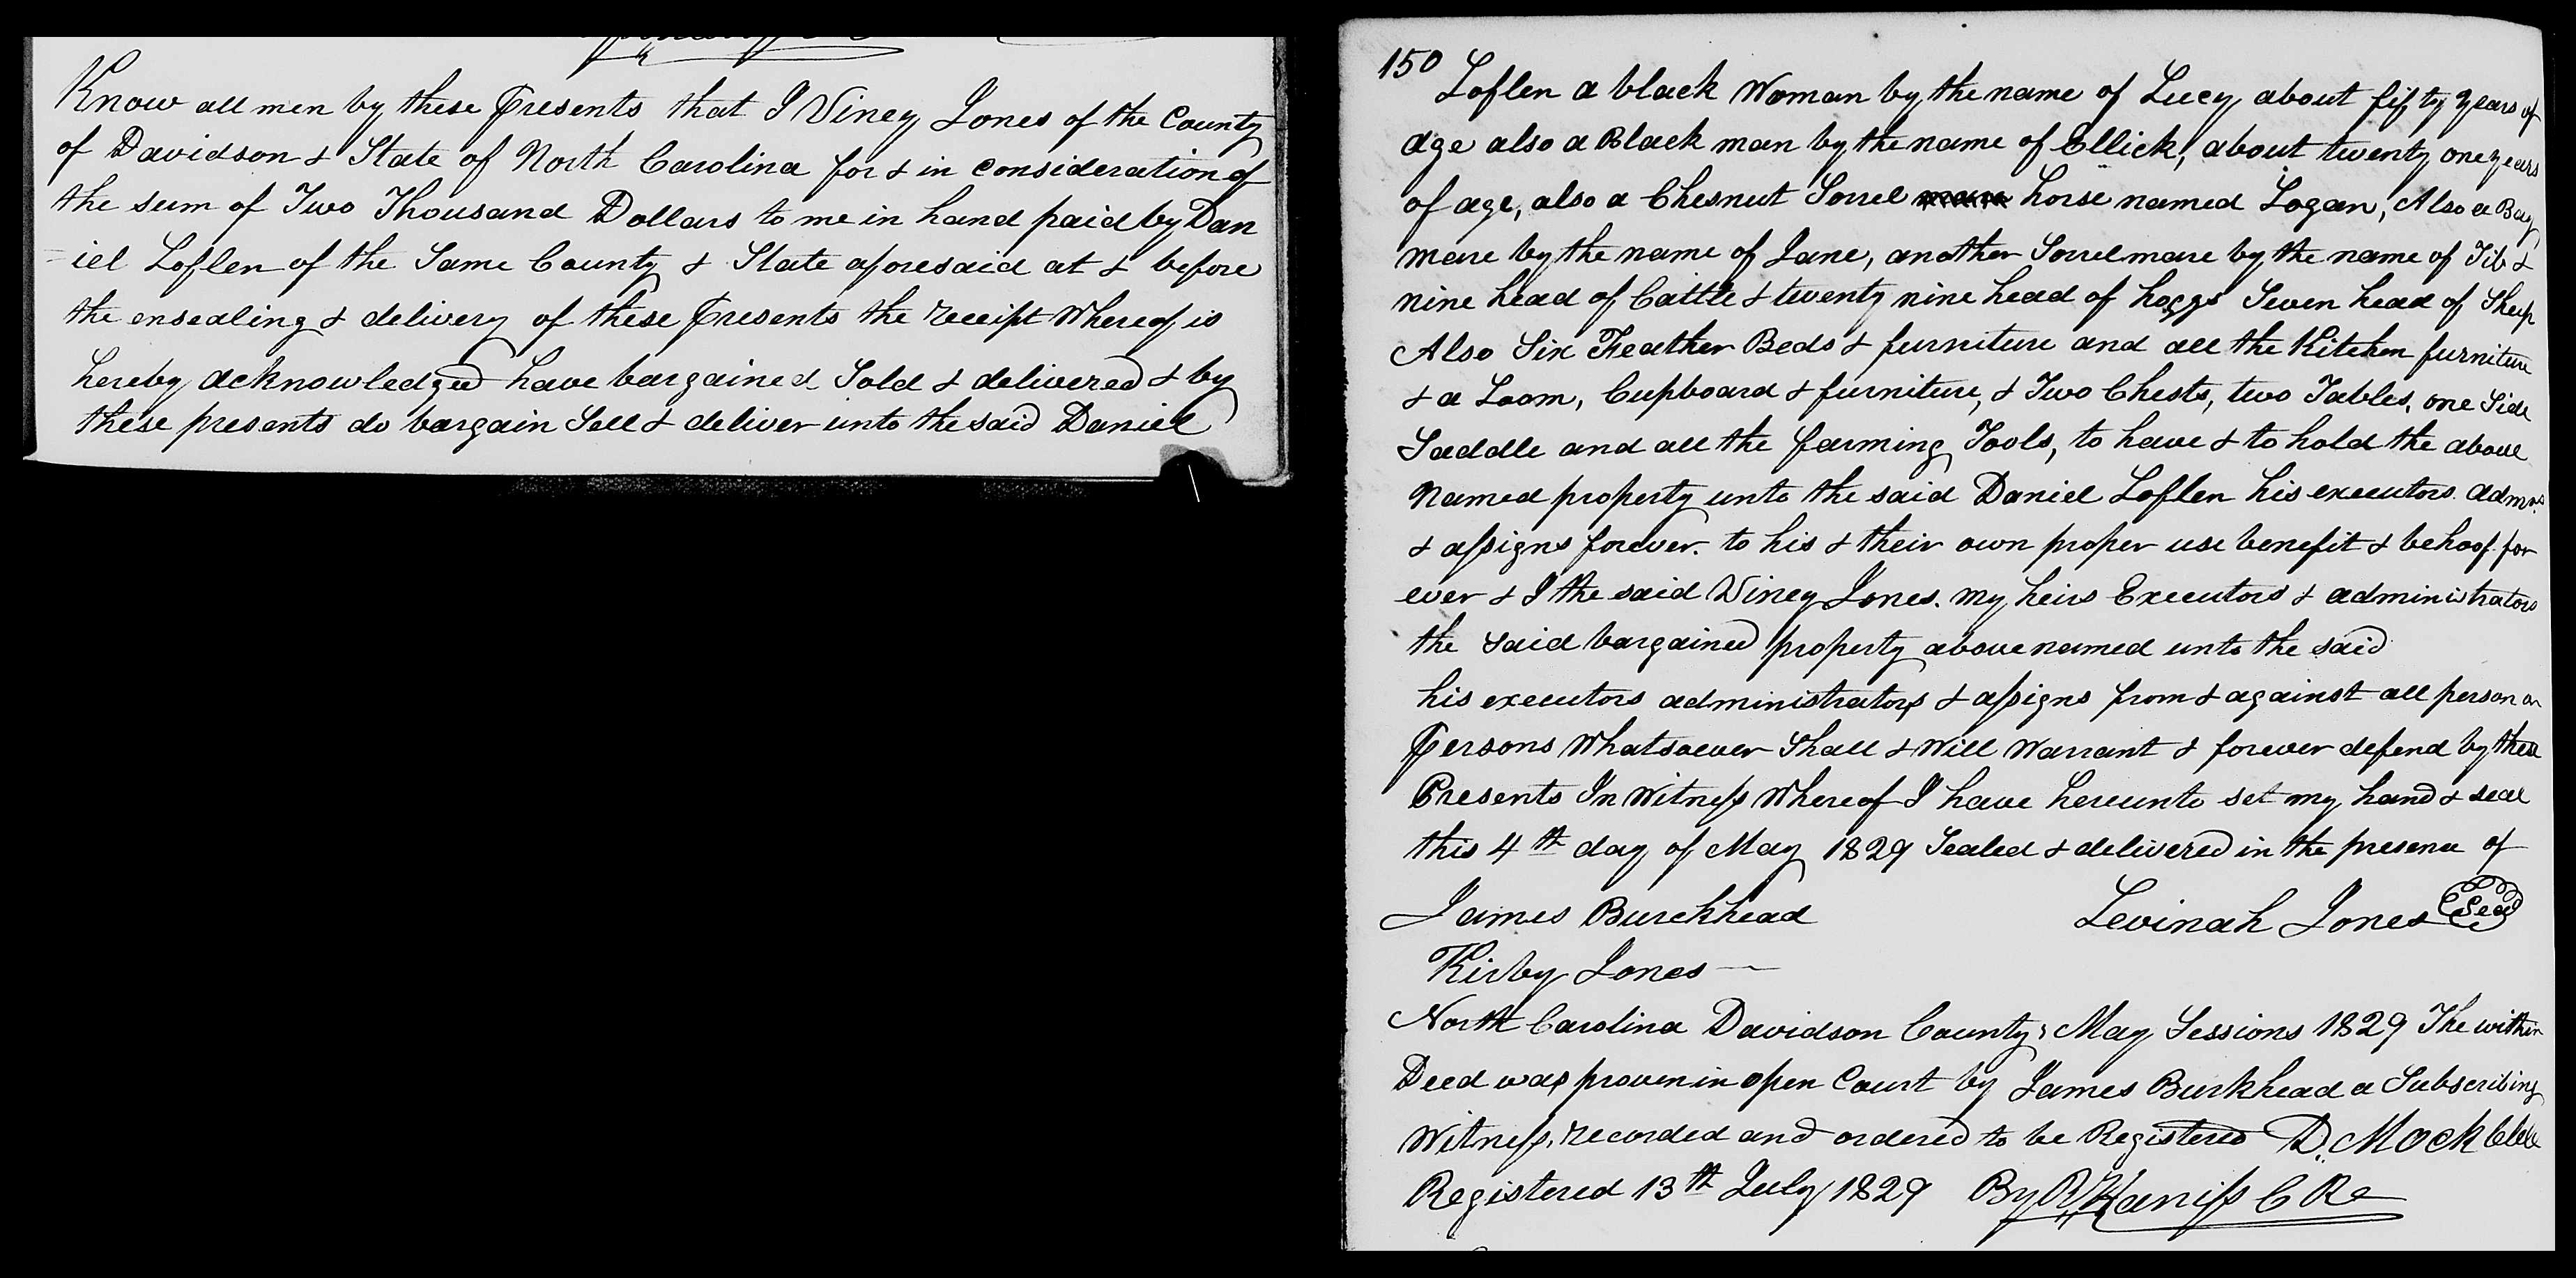 Know all men by these Presents that I Viney Jones of the County
of Davidson & State of North Carolina for & in consideration of
the sum of Two Thousand Dollars to me in hand paid by Dan
=iel Loflen of the Same County & State aforesaid at & before
the ensealing & delivery of these Presents the receipt Whereof is
hereby acknowledged have bargained Sold & delivered & by
these presents do bargain Sell & deliver unto the said Daniel
150
Loflen a black Woman by the name of Lucy about fifty years of
age also a Black man by the name of Ellick, about twenty one years
of age, also a Chesnut Sorrel mare horse named Logan, Also a Bay
mare by the name of Jane, another Sorrel mare by the name of Tib &
nine head of Cattle & twenty nine head of hoggs Seven head of Sheep
Also Six Feather Beds & furniture and all the Kitchen furniture
& a Loom, Cupboard & furniture, & Two Chests, two Tables, one Side
Saddle and all the farming Tools, to have & to hold the above
Named property unto the said Daniel Loflen his executors. admrs.
& assigns forever. to his & their own proper use benefit & behoof for
ever & I the said Viney Jones. my heirs Executors & administrators
the said bargained property above named unto the said
his executors administrators & assigns from & against all person or
Persons Whatsoever Shall & Will Warrant & forever defend by these
Presents In Witness Whereof I have hereunto set my hand & seal
this 4th day of May 1829 Sealed & delivered in the presence of
James Burckhead Levinah Jones Seal
Kirby Jones
North Carolina Davidson County, May Sessions 1829 The within
Deed was proven in open Court by James Burkhead a Subscribing
Witness, recorded and ordered to be Registered D. Mock Clk
Registered 13th July 1829 By R Harriss C Re